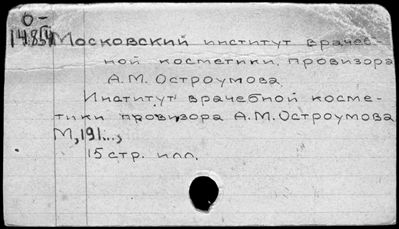 б-
14854
Московский институт врачеб-
ной косметики провизора
А.М. Остроумова.
Институт врачебной косме-
тики провизора А.М.Остроумова
М,191...,
15 стр. илл.